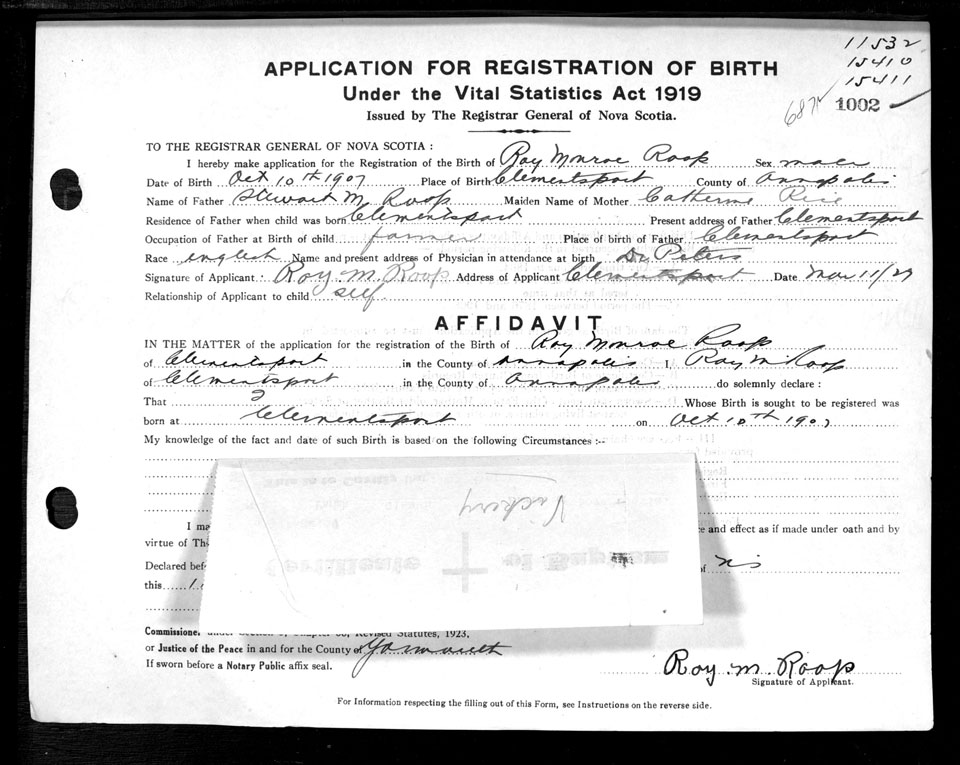 11532
15410
15411
687
1002
APPLICATION FOR REGISTRATION OF BIRTH
Under the Vital Statistics Act 1919
Issued by The Registrar General of Nova Scotia.
TO THE REGISTRAR GENERAL OF NOVA SCOTIA :
I hereby make application for the Registration of the Birth of Roy Monroe Roop Sex male
Date of Birth Oct 10th 1907 Place of Birth Clementsport County of Annapolis
Name of Father Stewart M. Roop Maiden Name of Mother Catherine Rice
Residence of Father when child was born Clementsport Present address of Father Clementsport
Occupation of Father at Birth of child farmer Place of birth of Father Clementsport
Race english Name and present address of Physician in attendance at birth Dr. Peters
Signature of Applicant : Roy M. Roop Address of Applicant Clementsport Date Mar 11/29
Relationship of Applicant to child self
AFFIDAVIT
IN THE MATTER of the application for the registration of the Birth of Roy Monroe Roop
of Clementsport in the County of Annapolis I, Roy M Roop
of Clementsport in the County of Annapolis do solemnly declare :
That I Whose Birth is sought to be registered was
born at Clementsport on Oct 10th 1907
My knowledge of the fact and date of such Birth is based on the following Circumstances :-
Vickery
I ma e and effect as if made under oath and by
virtue of Th
Certificate of Baptism
Declared bef of NS
this 1
Commissione under Section Chapter Revised Statutes, 1923,
or Justice of the Peace in and for the County of Yarmouth
If sworn before a Notary Public affix seal.
Roy. M. Roop
Signature of Applicant.
For Information respecting the filling out of this Form, see Instructions on the reverse side.